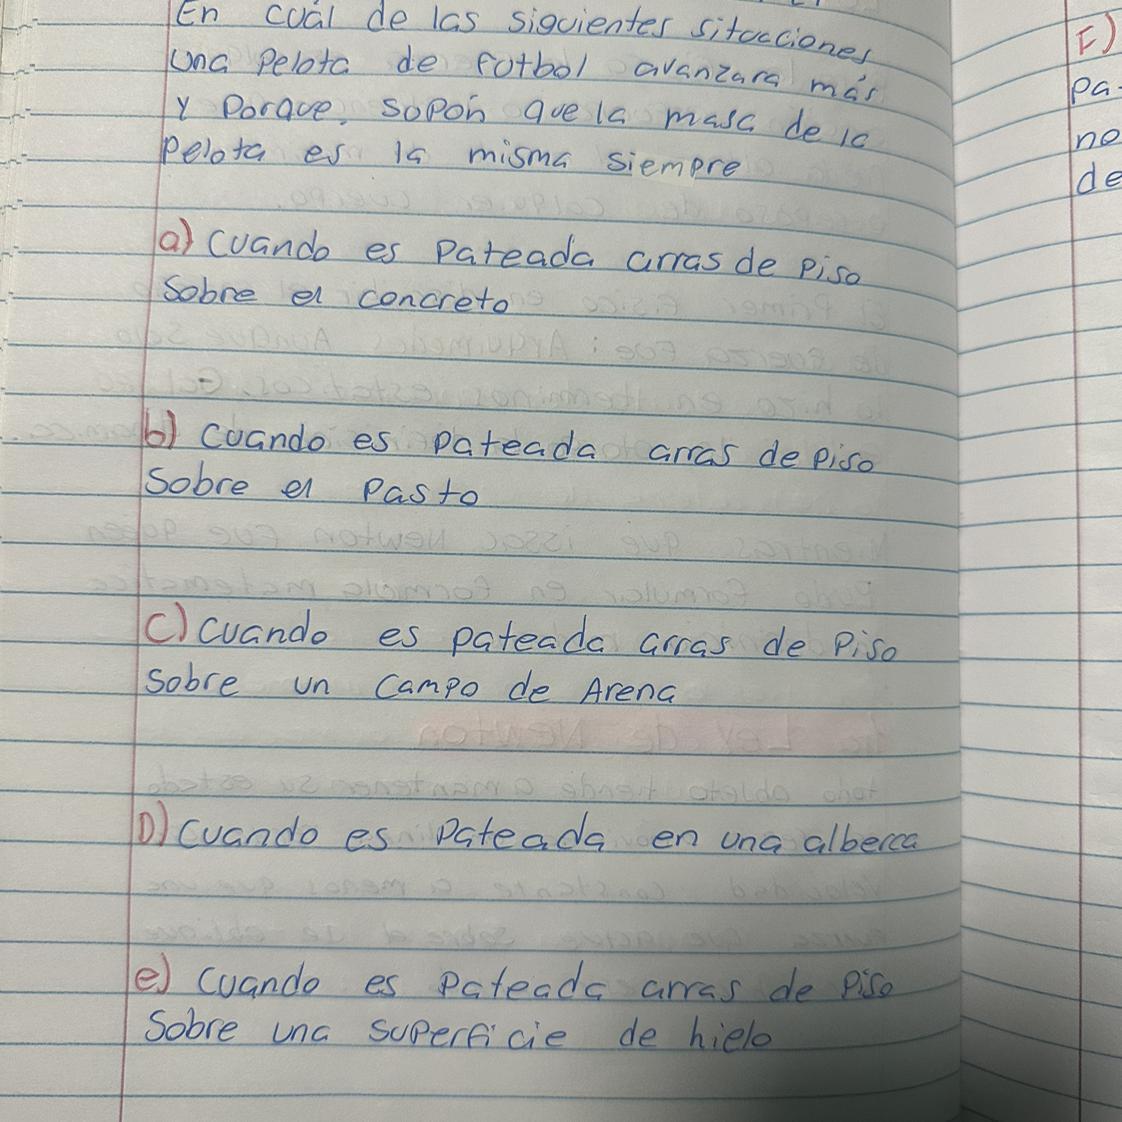 En cuál de las siguientes situcciones
una pelota de futbol avanzara más
y porque, sopón que la masa de la
pelota es la misma siempre
a) cuando es pateada arras de piso
sobre el concreto
b) cuando es pateada arras de piso
sobre el pasto
c) cuando es pateada arras de piso
sobre un campo de Arena
D) cuando es pateada en una alberca
e) cuando es pateada arras de piso
sobre una superficie de hielo
F)
pa-
no
de